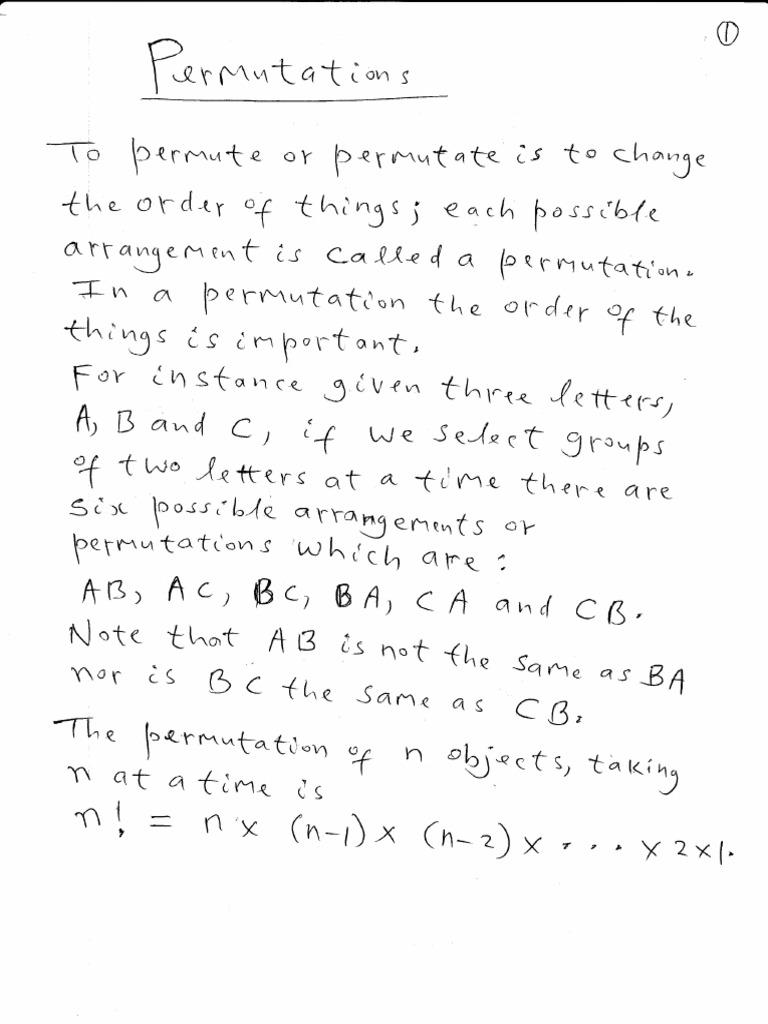 ①
Permutations
To permute or permutate is to change
the order of things; each possible
arrangement is called a permutation.
In a permutation the order of the
things is important.
For instance given three letters,
A, B and C, if we select groups
of two letters at a time there are
six possible arrangements or
permutations which are:
AB, AC, BC, BA, CA and CB.
Note that AB is not the same as BA
nor is BC the same as CB.
The permutation of n objects, taking
n at a time is
n! = n x (n-1) x (n-2) x . . . . x 2 x 1.